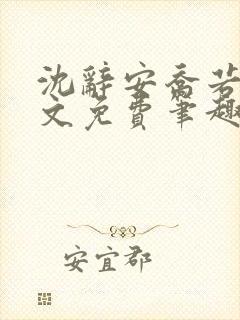 沈辞安乔若
文免费笔趣
安宜郡